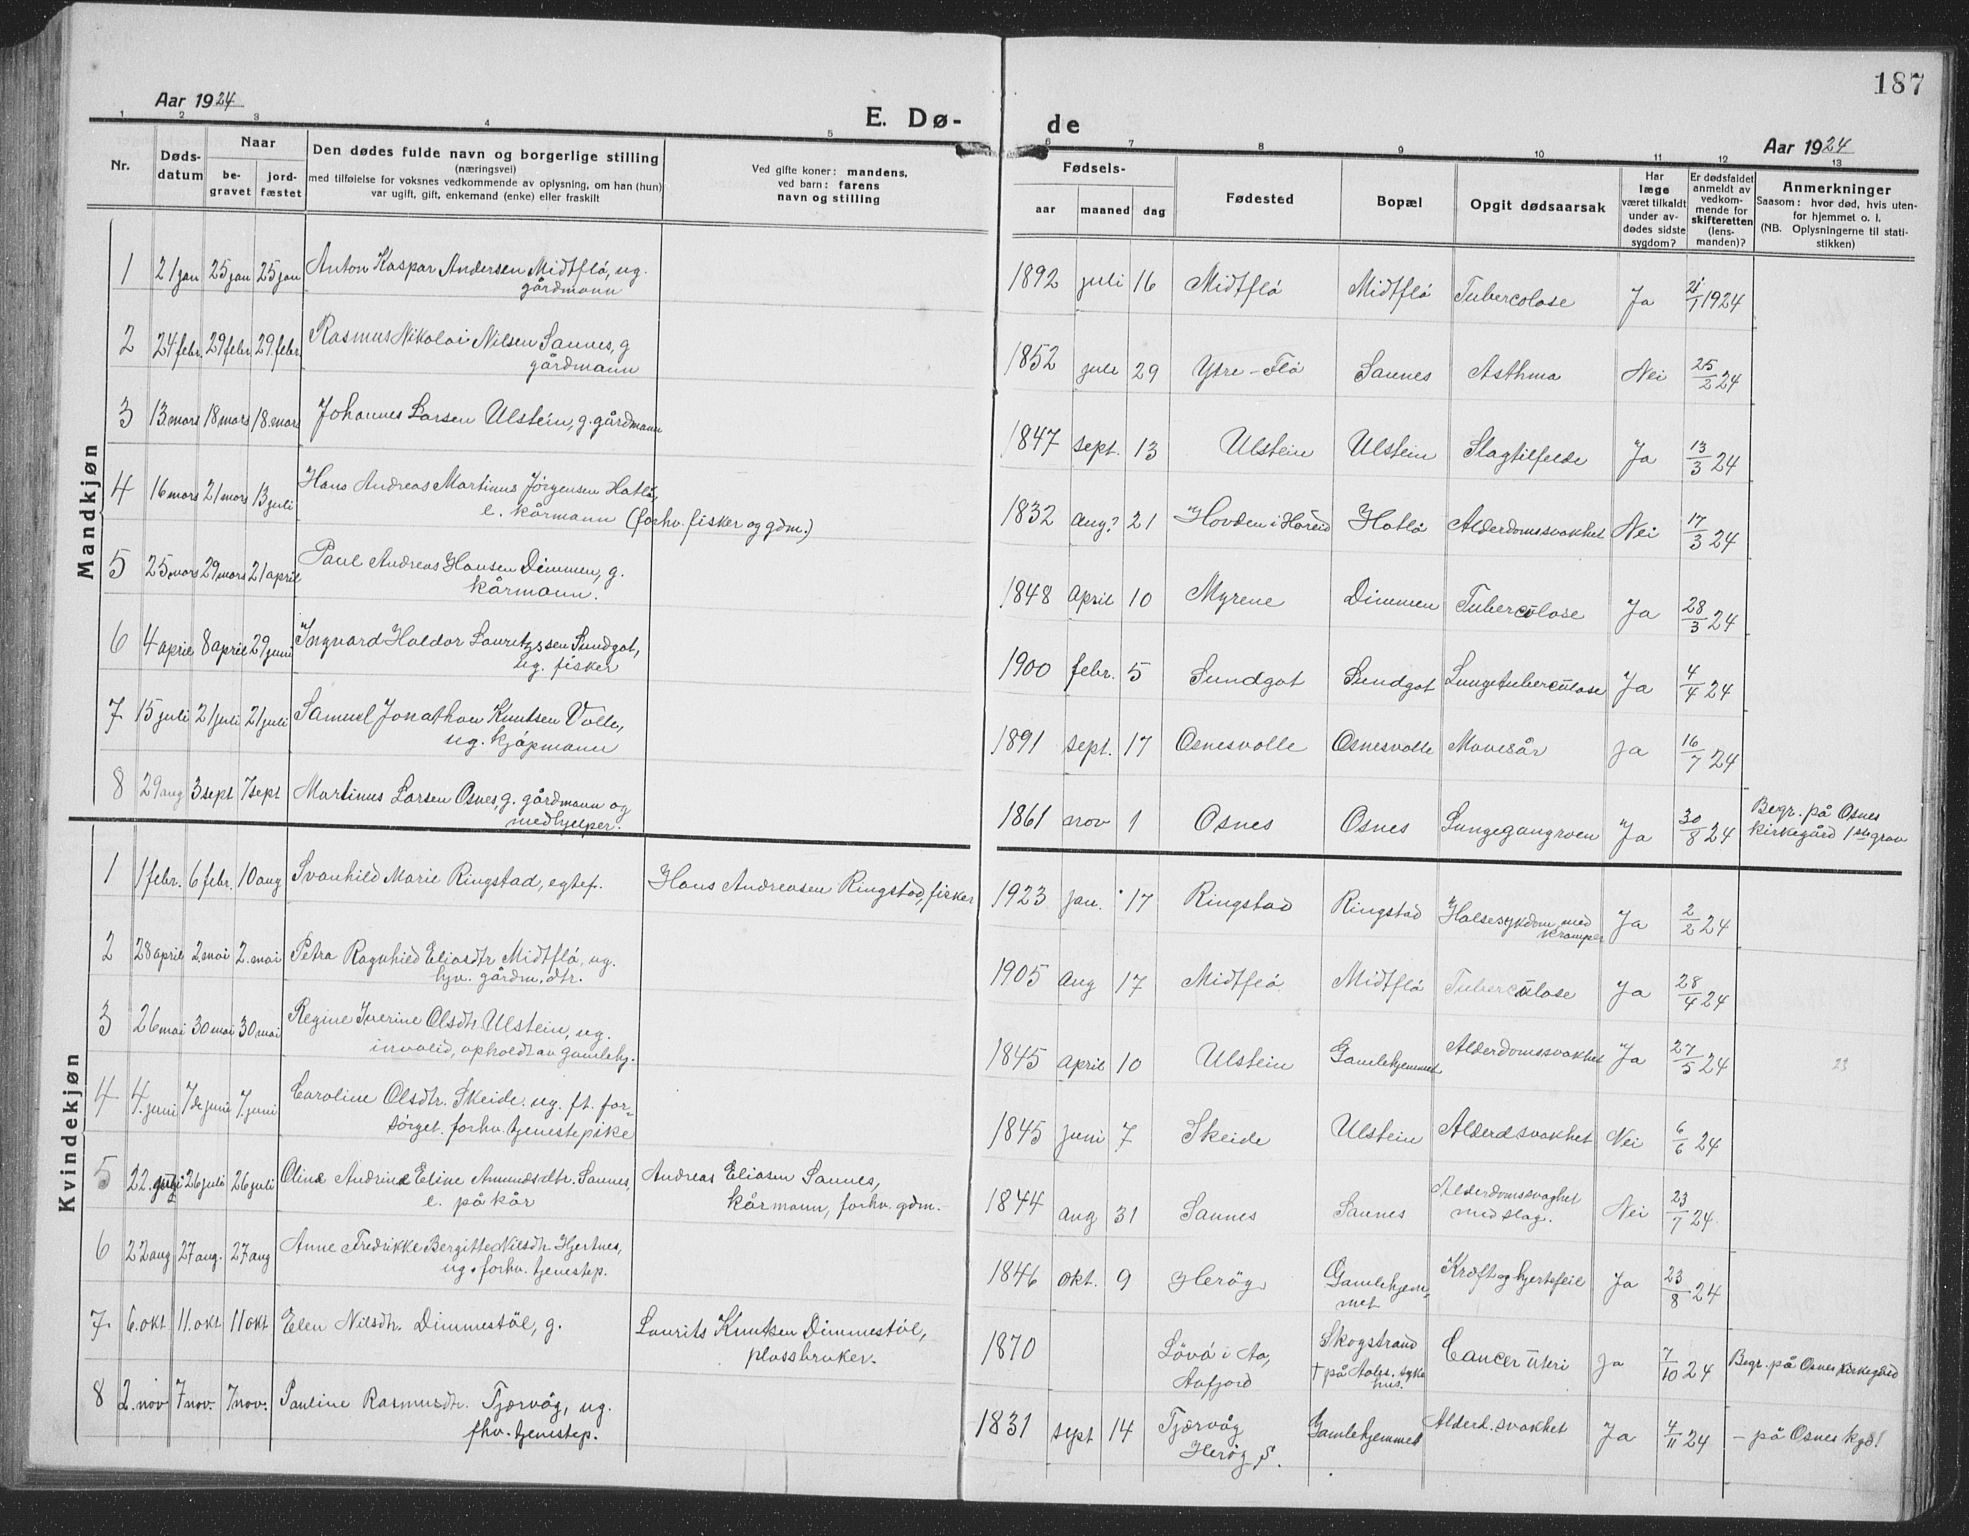 187
Aar 1924
E. Dø-
de
Aar 1924
1 2 3 4 5 6 7 8 9 10 11 12 13
Nr.
Døds-
datum
Naar
be-
gravet
jord-
fæstet
Den dødes fulde navn og borgerlige stilling
(næringsvei)
med tilføielse for voksnes vedkommende av oplysning, om han (hun)
var ugift, gift, enkemand (enke) eller fraskilt
Ved gifte koner: mandens,
ved barn: farens
navn og stilling
Fødsels-
aar maaned dag
Fødested
Bopæl
Opgit dødsaarsak
Har
læge
været tilkaldt
under av-
dødes sidste
sygdom?
Er dødsfaldet
anmeldt av
vedkom-
mende for
skifteretten
(lens-
manden)?
Anmerkninger
Saasom: hvor død, hvis uten-
for hjemmet o. l.
(NB. Oplysningerne til stati-
stikken)
Mandkjøn
1 21 jan 25 jan 25 jan Anton Kaspar Andersen Midtflø, ug. 1892 juli 16 Midtflø Midtflø Tubercolose Ja 21/1 1924
gårdmann
2 24 febr. 29 febr 29. febr. Rasmus Nikolai Nilsen Saunes, g 1852 juli 29 Ytre-Flø Saunes Asthma Nei 25/2 24
gårdmann
3 13. mars 18 mars 18. mars Johannes Larsen Ulstein, g. gårdmann 1847 sept. 13 Ulstein Ulstein Slagtilfelde Ja 13/3 24
4 16 mars 21 mars 13 juli Hans Andreas Martinus Jørgensen Hatlø, 1832 aug? 21 Hovden i Hareid Hatlø Alderdomssvakhet Nei 17/3 24
e. kårmann (forhv. fisker og gdm.)
5 25 mars 29 mars 21 april Paul Andreas Hansen Dimmen, g. 1848 april 10 Myrene Dimmen Tuberculose Ja 28/3 24
kårmann.
6 4 april 8 april 29 juni Ingvard Haldor Lauritzssen Sundgot, 1900 febr. 5 Sundgot Sundgot Lungetuberculose Ja 4/4 24
ug. fisker
7 15 juli 21 juli 21 juli Samuel Jonathan Knutsen Volle, 1891 sept. 17 Osnesvolle Osnesvolle Mavesår ja 16/7 24
ug. kjøpmann
8 29 aug 3 sept 7 sept Martinus Larsen Osnes, g. gårdmann og 1861 nov 1 Osnes Osnes Lungegangræn Ja 30/8 24 Begr. på Osnes
medhjelper. kirkegård 1ste grav
Kvindekjøn
1 1 febr. 6 febr. 10 aug Svanhild Marie Ringstad, egtef. Hans Andreasen Ringstad, fisker 1923 jan. 17 Ringstad Ringstad Halssykdom med Ja 2/2 24
kramper
2 28 april 2. mai 2. mai Petra Ragnhild Eliasdtr Midtflø, ug. 1905 aug 17 Midtflø Midtflø Tuberculose Ja 28/4 24
hjv. gårdm. dtr.
3 26 mai 30 mai 30 mai Regine Iverine Olsdtr Ulstein, ug. 1845 april 10 Ulstein Gamlehjemmet Alderdomssvakhet Ja 27/5 24 23
invalid, opholdt av gamlehj.
4 4. juni 7de juni 7. juni Caroline Olsdtr. Skeide. ug. ft. for- 1845 juni 7 Skeide Ulstein Alderd svakhet Nei 6/6 24
sørget. forhv. tjenestepike
5 22. juli 26 juli 26 juli Oline Andrine Eline Amundsdtr. Saunes, Andreas Eliasen Saunes, 1844 aug 31 Saunes Saunes Alderdomssvaghet Nei 23/7 24.
e. på kår kårmann, forhv. gdm. med slag.
6 22 aug 27 aug. 27 aug Anne Fredrikke Bergitte Nilsdtr. Hjertnes, 1846 okt. 9 Herøy Gamlehjem- Kræft og hjertefeil Ja 23/8 24
ug. forhv. tjenestep. met
7 6. okt 11. okt 11 okt Elen Nilsdtr. Dimmestøl, g. Laurits Knutsen Dimmestøl, 1870 Løvå i Aa, Skogstrand Cancer uteri ja 7/10 24 Begr. på Osnes kirkegård
plassbruker. Aafjord † på Aales. syke
hus.
8 2. nov 7 nov. 7 nov. Pauline Rasmusdtr. Tjørvåg, ug. 1831 sept 14 Tjørvåg Gamlehjemmet Alderd. svakhet Ja 4/11 24 – på Osnes kgd!
fhv. tjenestep. Herøy S.